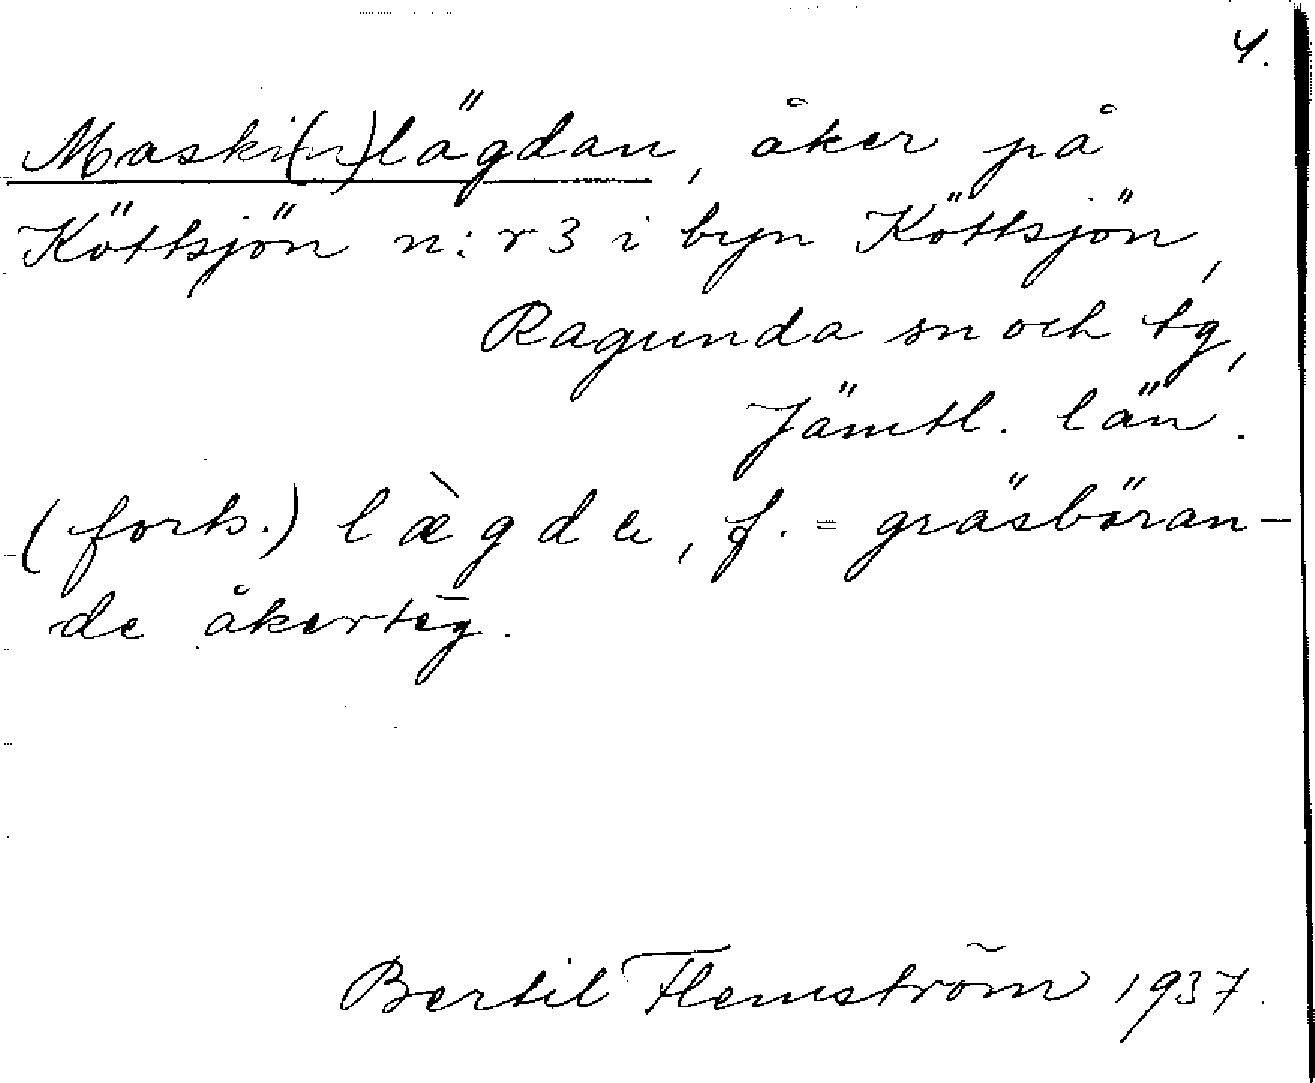 4.
Maski(n)lägdan, åker på
Köttsjön n:r 3 i byn Köttsjön,
Ragunda sn och tg,
Jämtl. län.
(forts.) lægde, f. = gräsbäran-
de åkerteg.
Bertil Flemström 1937.